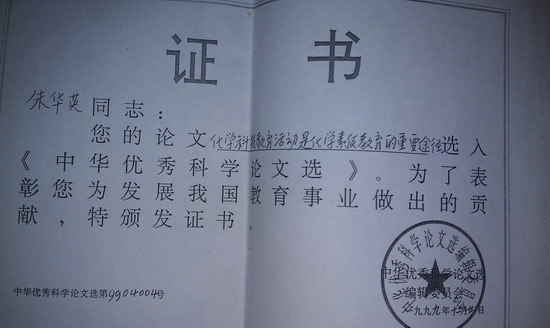 证 书
朱华英同志：
您的论文化学科技教育活动是化学素质教育的重要途径选入
《中华优秀科学论文选》。为了表
彰您为发展我国教育事业做出的贡
献，特颁发证书
中华优秀科学论文选
编辑委员会
中华优秀科学论文选第9904004号
一九九九年十月